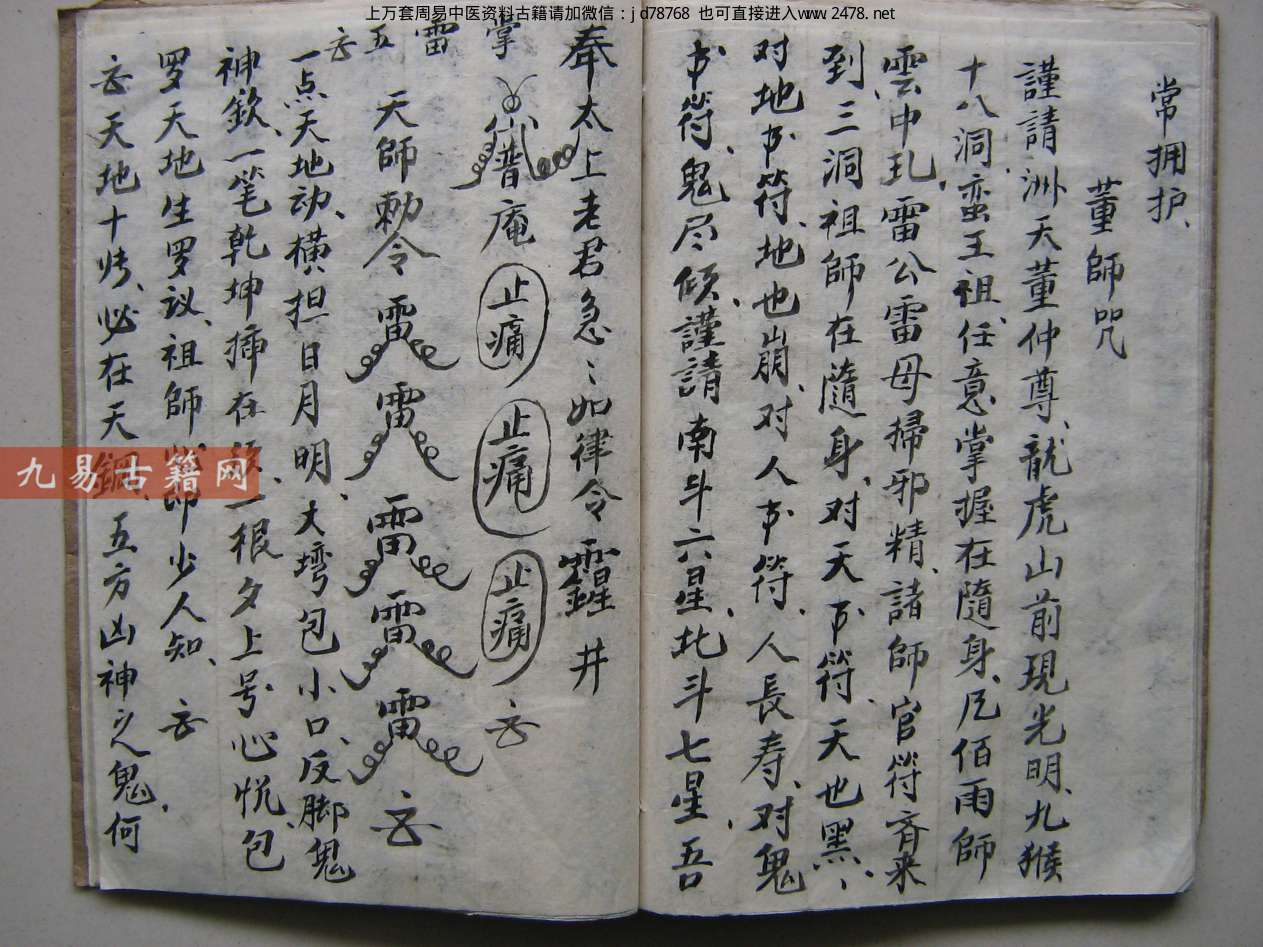 上万套周易中医资料古籍请加微信：jd78768 也可直接进入www.2478.net
常拥护、
董師咒
謹請洲天董仲尊、龍虎山前現光明、九猴
十八洞、蛮王祖、任意掌握在隨身、风佰雨師
雲中乱、雷公雷母掃邪精、諸師官符斉来
到、三洞祖師在隨身、对天书符、天也黑、
对地书符、地也崩、对人书符、人長寿、对鬼
书符、鬼尽倾、謹請南斗六星、北斗七星、吾
奉太上老君急〻如律令 井
掌
普庵 止痛 止痛 止痛
雷
五
天師勅令 雷 雷 雷 雷 雷
一点天地动、横担日月明、大塆包小口、反脚鬼
神欽、一笔乾坤插在 一根夕上号心悦、包
罗天地生罗议、祖師 少人知、
天地十 必在天鋼、五方凶神之鬼、何
九易古籍网